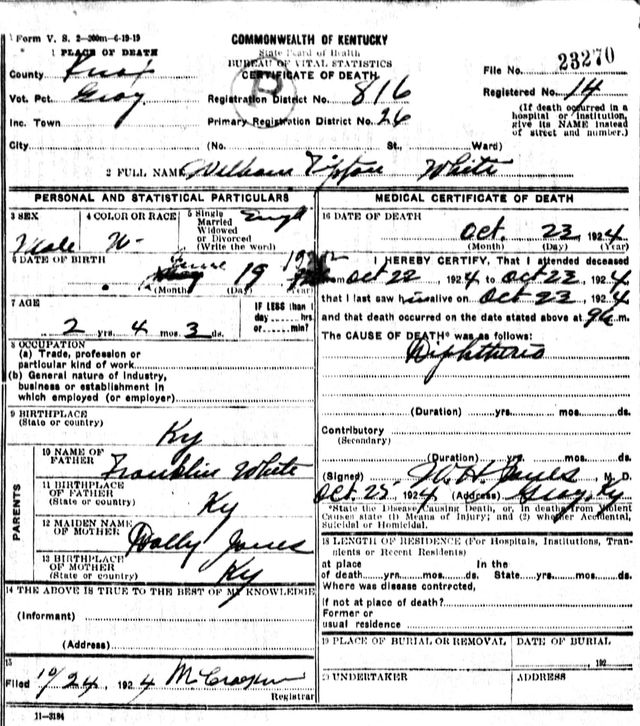 Form V. S. 2-200m-6-19-19
COMMONWEALTH OF KENTUCKY
State Board of Health
BUREAU OF VITAL STATISTICS
CERTIFICATE OF DEATH
1 PLACE OF DEATH
County Knox
Vot. Pct. Gray
Inc. Town
City
Registration District No. 816
Primary Registration District No. 26
(No. St., Ward)
File No. 23270
Registered No. 14
(If death occurred in a
hospital or institution,
give its NAME instead
of street and number.)
2 FULL NAME William Tipton White
PERSONAL AND STATISTICAL PARTICULARS
3 SEX
Male
4 COLOR OR RACE
W-
5 Single
Married
Widowed
or Divorced
(Write the word)
Singl
6 DATE OF BIRTH
June 19 1922
(Month) (Day) (Year)
7 AGE
2 yrs. 4 mos. 3 ds.
IF LESS than 1
day hrs.
or min?
8 OCCUPATION
(a) Trade, profession or
particular kind of work
(b) General nature of industry,
business or establishment in
which employed (or employer)
9 BIRTHPLACE
(State or country)
Ky
PARENTS
10 NAME OF
FATHER Franklin White
11 BIRTHPLACE
OF FATHER
(State or country) Ky
12 MAIDEN NAME
OF MOTHER Dolly Jones
13 BIRTHPLACE
OF MOTHER
(State or country) Ky
14 THE ABOVE IS TRUE TO THE BEST OF MY KNOWLEDGE
(Informant)
(Address)
15
Filed 10/24, 1924
Registrar
11-3184
MEDICAL CERTIFICATE OF DEATH
16 DATE OF DEATH
Oct. 23, 1924
(Month) (Day) (Year)
I HEREBY CERTIFY, That I attended deceased
from Oct 22, 1924 to Oct 23, 1924
that I last saw him alive on Oct 23, 1924
and that death occurred on the date stated above at 9 m.
The CAUSE OF DEATH* was as follows:
Diphtheria
(Duration) yrs. mos. ds.
Contributory
(Secondary)
(Duration) yrs. mos. ds.
(Signed) W. H. Jones, M. D.
Oct. 25, 1924 (Address) Gray, Ky
*State the Disease Causing Death, or, in deaths from Violent
Causes state (1) Means of Injury; and (2) whether Accidental,
Suicidal or Homicidal.
18 LENGTH OF RESIDENCE (For Hospitals, Institutions, Transients
or Recent Residents)
at place In the
of death yrs. mos. ds. State yrs. mos. ds.
Where was disease contracted,
if not at place of death?
Former or
usual residence
19 PLACE OF BURIAL OR REMOVAL
DATE OF BURIAL
192
20 UNDERTAKER
ADDRESS